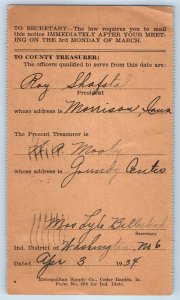 TO SECRETARY—The law requires you to mail
this notice IMMEDIATELY AFTER YOUR MEET-
ING ON THE 3rd MONDAY OF MARCH.
TO COUNTY TREASURER:
The officers qualified to serve from this date are:
Roy
President
whose address is Morrison, Iowa
The Present Treasurer is
A.
whose address is Grundy Center
Mrs Lyle
Secretary
Ind. District of Washington No 6
Dated Apr 3 1934
Metropolitan Supply Co., Cedar Rapids, Ia.
Form No. for Ind. Dists.